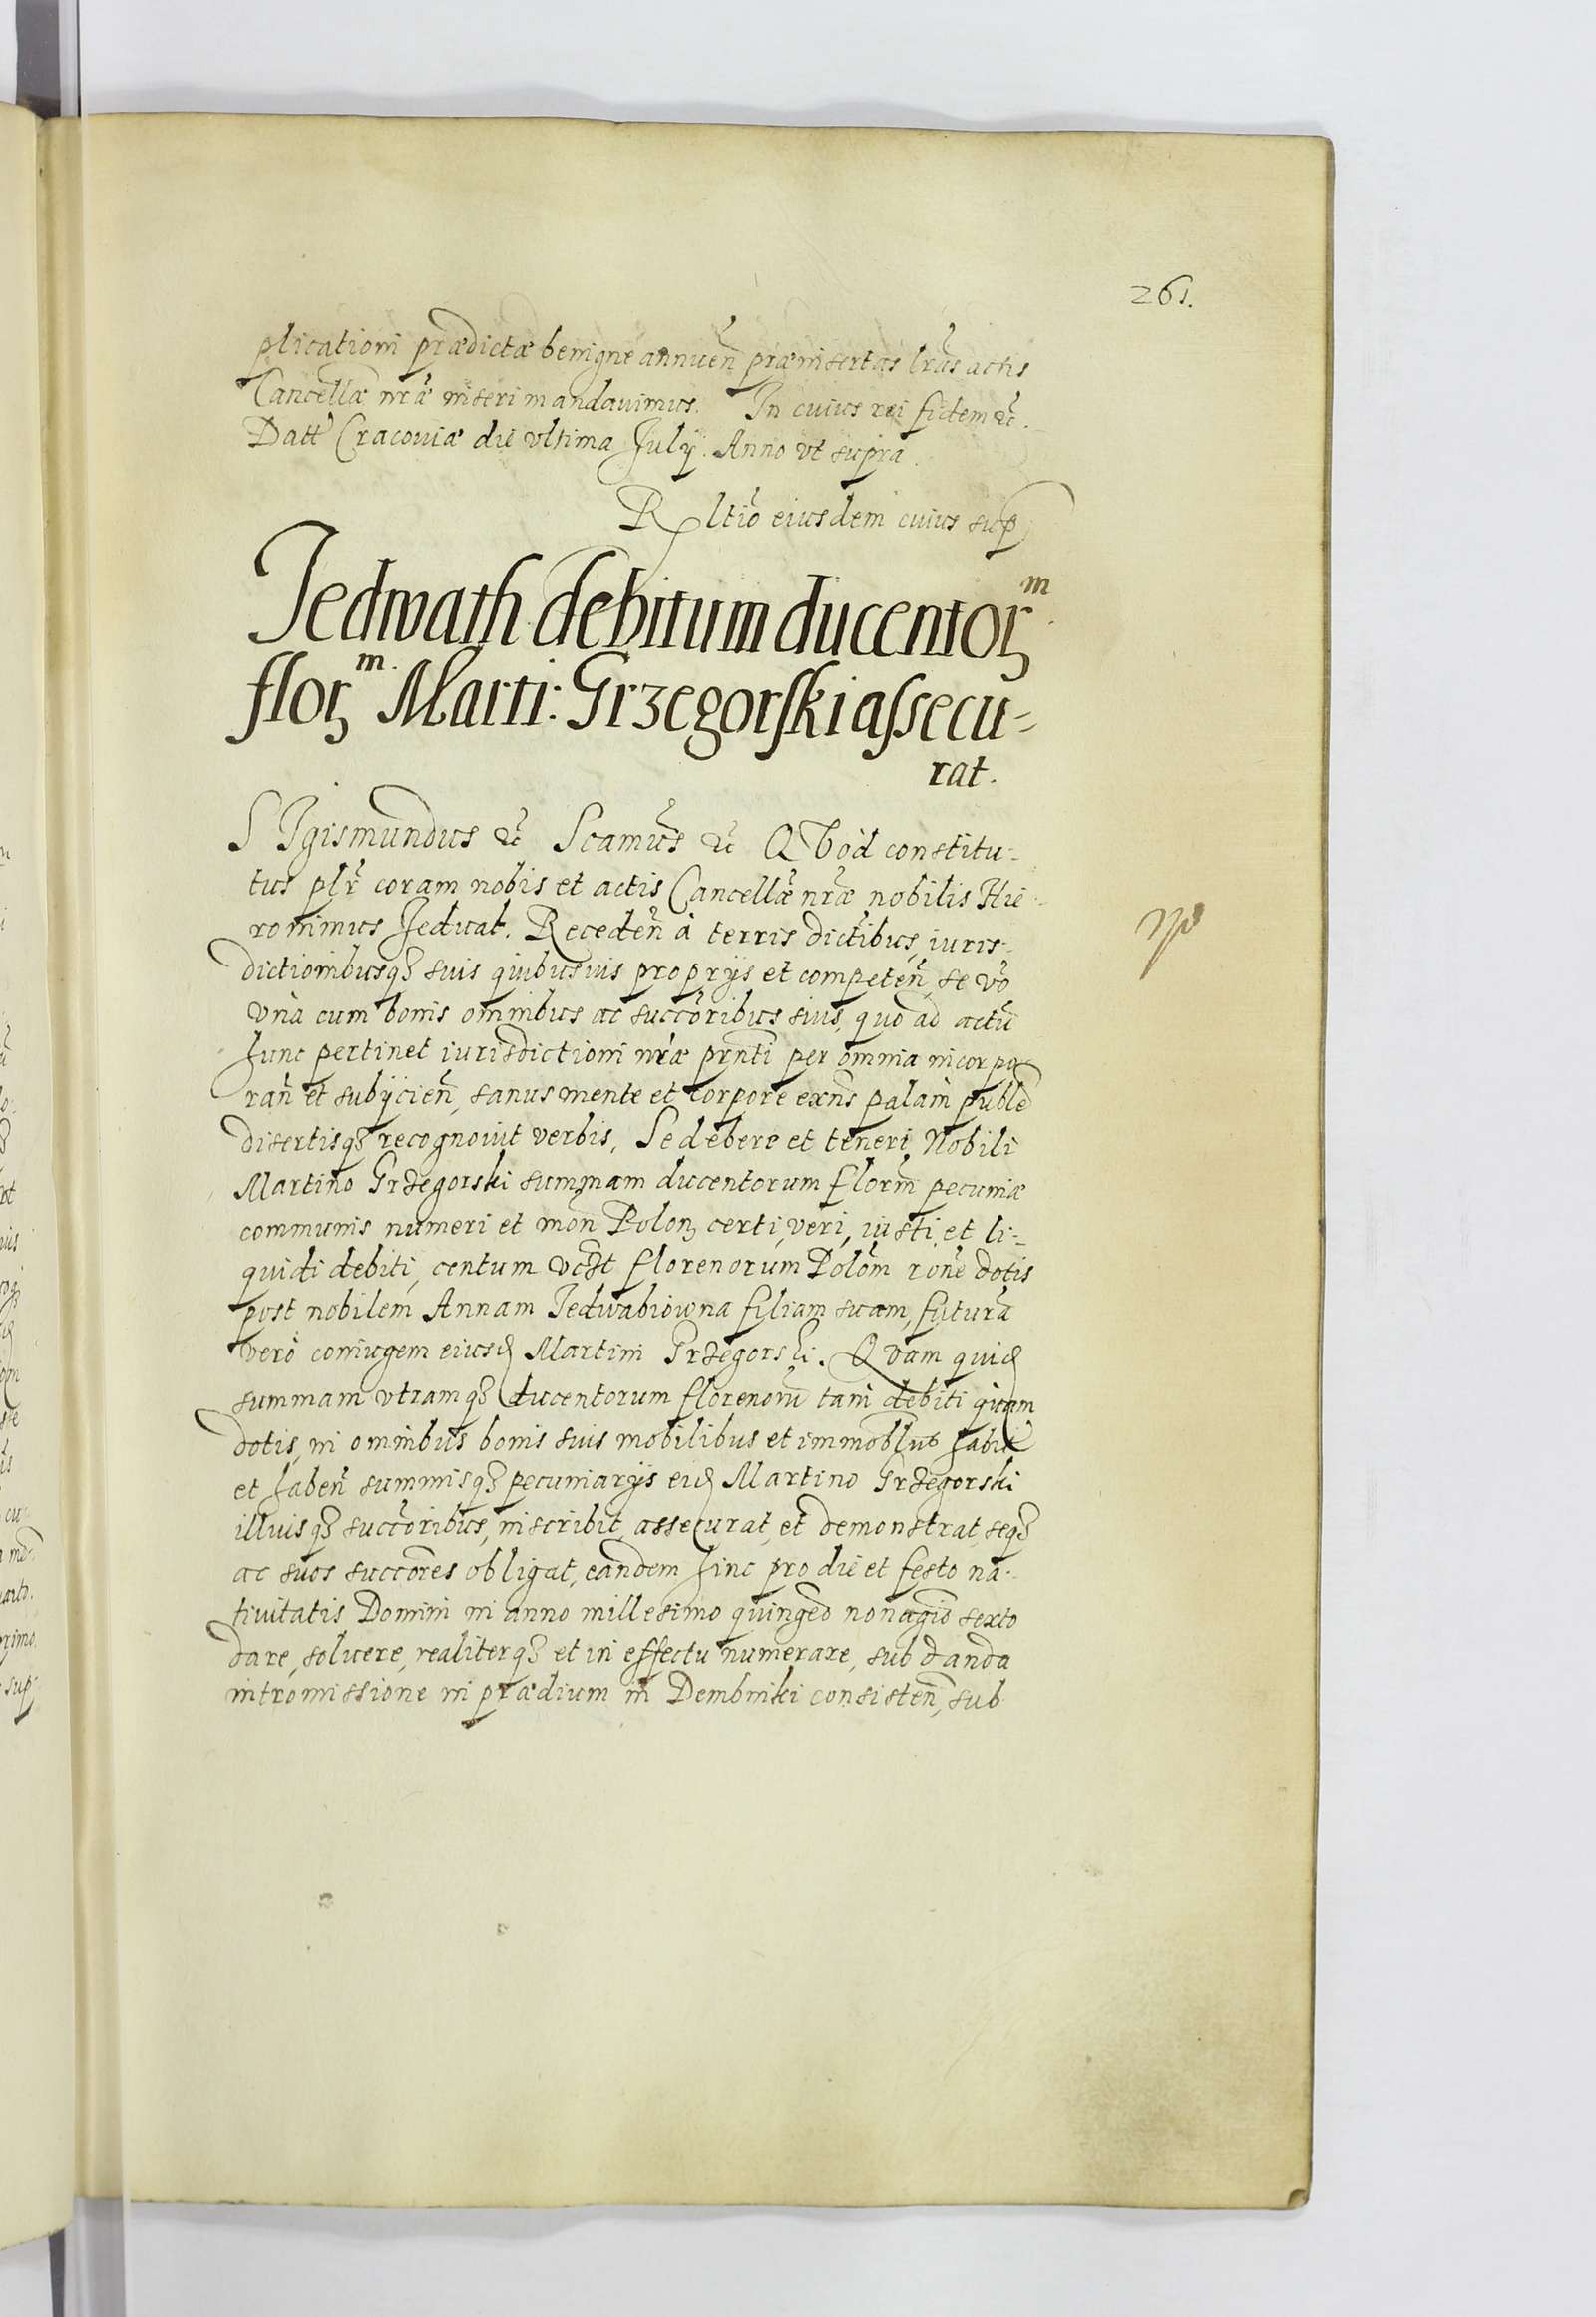 261.
plicationi prædictæ benigne annuen̄ præinsertas lr̃as actis
Cancellæ nræ̃ inseri mandauimus. In cuius rei fidem &c̃.
Datt̃ Cracouiæ die vltima July. Anno vt supra.
Rltiõ eiusdem cuius sup
Jedwath debitum ducentoꝝ m
floꝝ m. Marti: Grzegorſki aſsecu-
rat.
SIgismundus &c̃ Scamus̃ &c̃ QVod constitu-
tus plr̃ coram nobis et actis Cancellæ̃ nræ̃ nobilis Hie-
ronimus Jeduat. Receden̄ à terris dictĩbus, iuris-
dictionibusqꝫ suis quibusuis proprijs et competen̄, se võ
vnà cum bonis omnibus ac succõribus suis, quo ad actũ
hunc pertinet iurisdictioni nrǽ prn̄ti per omnia incorpo
ran̄ et subijcien̄, sanus mente et corpore exn̄s palàm puble
disertisqꝫ recognouit verbis, Se debere et teneri Nobili
Martino Grzegorski summam ducentorum florm̃ pecuniæ
communis numeri et mon̄ Poloꝝ certi, veri, iusti, et li-
quidi debiti, centum vczt florenorum Polõm rõne dotis
post nobilem Annam Jedwabiowna filiam suam, futurã
verò coniugem eiusd Martini Grzegorski. Quam quid
summam vtramqꝫ ducentorum florenorũ tam debiti quam
dotis, in omnibus bonis suis mobilibus et immoblus habit
et haben̄ summisqꝫ pecuniarijs eid Martino Grzegorski
illiusqꝫ succõribus, inscribit, assecurat, et demonstrat, seqꝫ
ac suos succõres obligat, eandem hinc pro die et festo na-
tiuitatis Domini in anno millesimo quingeo nonagio sexto
dare, soluere, realiterqꝫ et in effectu numerare, sub danda
intromissione in prædium in Dembniki consisten̄, sub